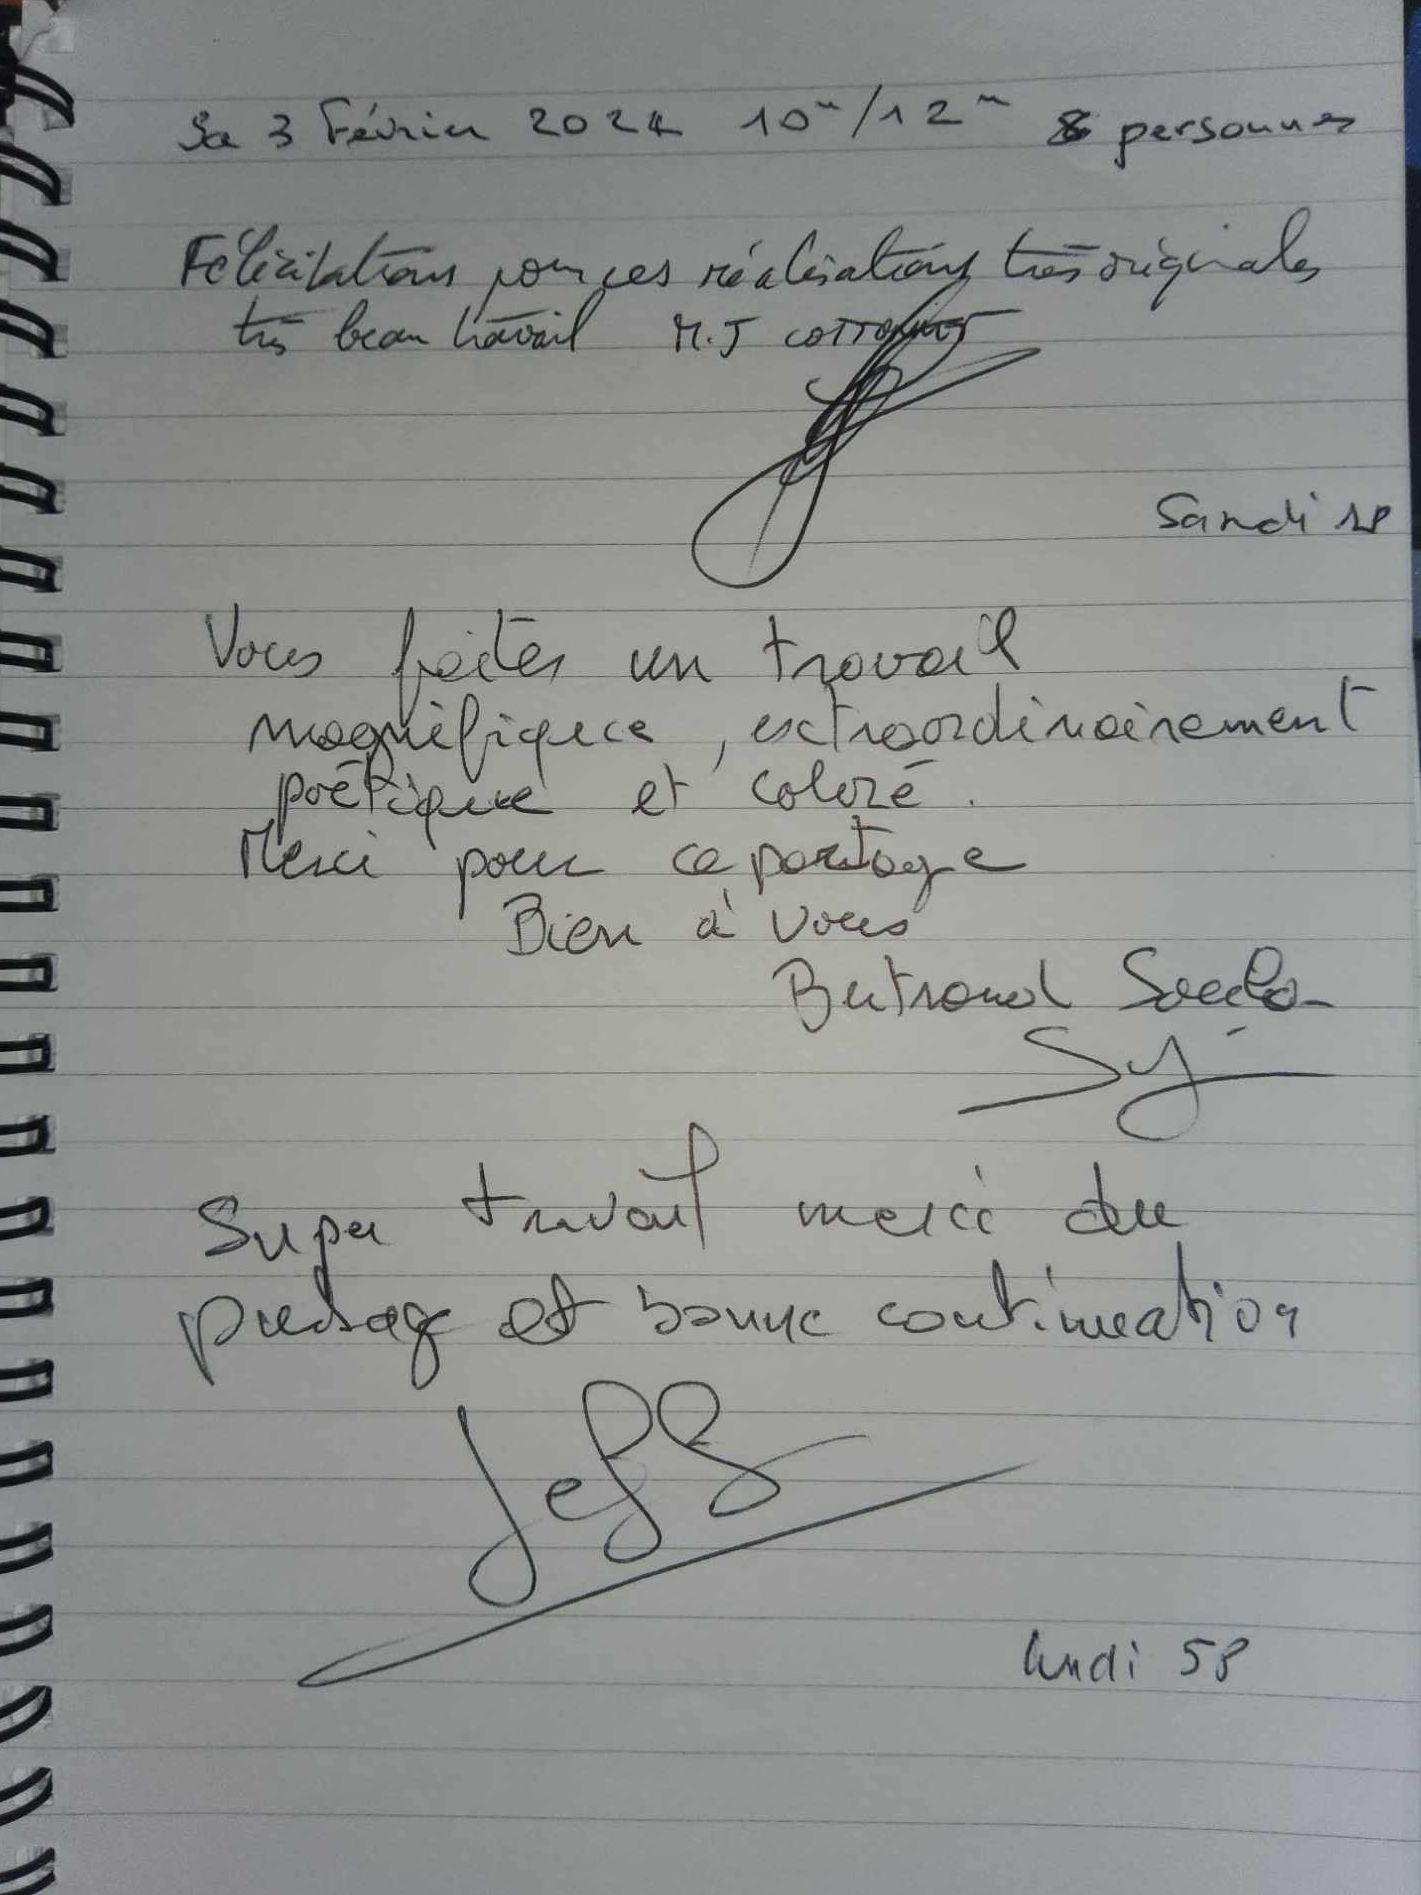 Sa 3 Février 2024 10h/12h 8 personnes
Félicitations pour ces réalisations très originales
très beau travail M.J
Samdi 18
Vous faites un travail
magnifique, extraordinairement
poétique et coloré.
Merci pour ce partage
Bien à vous
Bertrand
Super travail merci du
et bonne continuation
Jeff
lundi 58